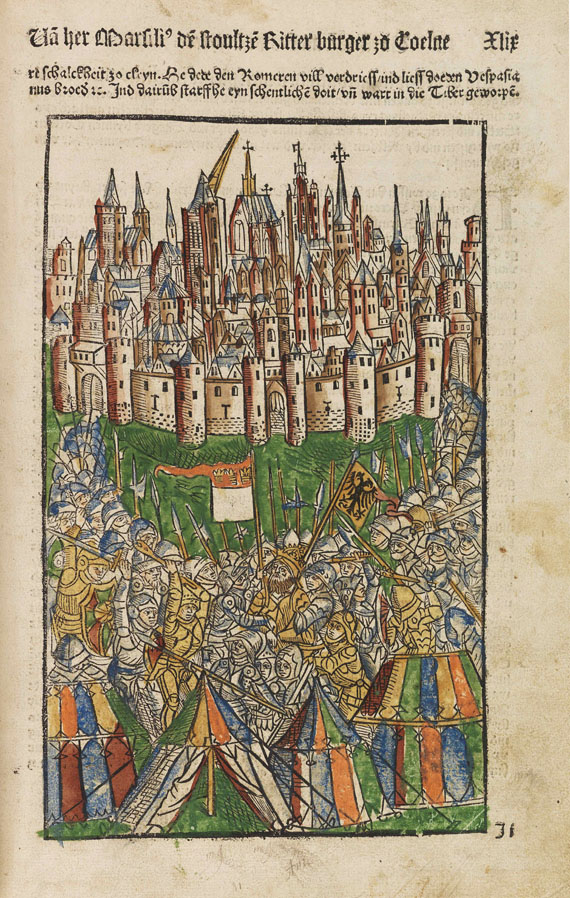 Uā her Marsiliꝰ dē stoultzē Ritter burger zo Coelne Xlix
re schalckheit zo cleyn. He dede den Romeren vill verdrieß/ ind lieff doeden Vespasia
nus broed ⁊c. Ind dairūb starff he eyn schentlichē doit/ vn̄ wart in die Tiber geworpē.
J1